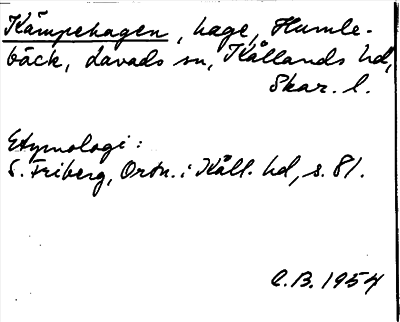 Kämpehagen, hage, Humle-
bäck, Lavads sn, Kållands hd,
Skar. l.
Etymologi:
S. Friberg, Ortn. i Kåll. hd, s. 81.
C.B. 1954